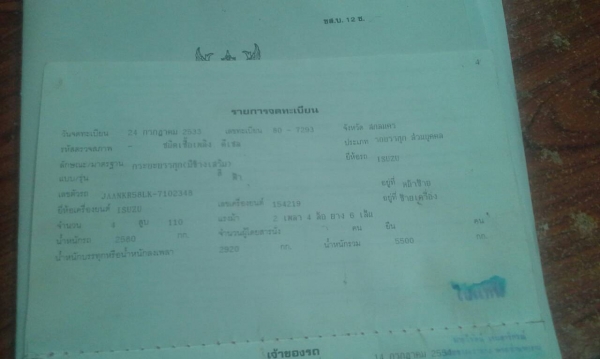 ขส.บ. 12 ข.
รายการจดทะเบียน
วันจดทะเบียน 24 กรกฎาคม 2533 เลขทะเบียน 80 - 7293 จังหวัด
รหัสตรวจสภาพ - ชนิดเชื้อเพลิง ดีเซล ประเภท ส่วนบุคคล
ลักษณะ/มาตรฐาน กระบะบรรทุก(มีข้างเสริม) ยี่ห้อรถ ISUZU
แบบ/รุ่น สี ฟ้า
เลขตัวรถ อยู่ที่ หน้าซ้าย
ยี่ห้อเครื่องยนต์ ISUZU เลขเครื่องยนต์ 194219 อยู่ที่ ซ้ายเครื่อง
จำนวน 4 สูบ 110 แรงม้า 2 เพลา 4 ล้อ ยาง 6 เส้น
น้ำหนักรถ 2580 กก. จำนวนผู้โดยสารนั่ง คน ยืน คน
น้ำหนักบรรทุกหรือน้ำหนักลงเพลา 2920 กก. น้ำหนักรวม 5500 กก.
เจ้าของรถ
24 กรกฎาคม